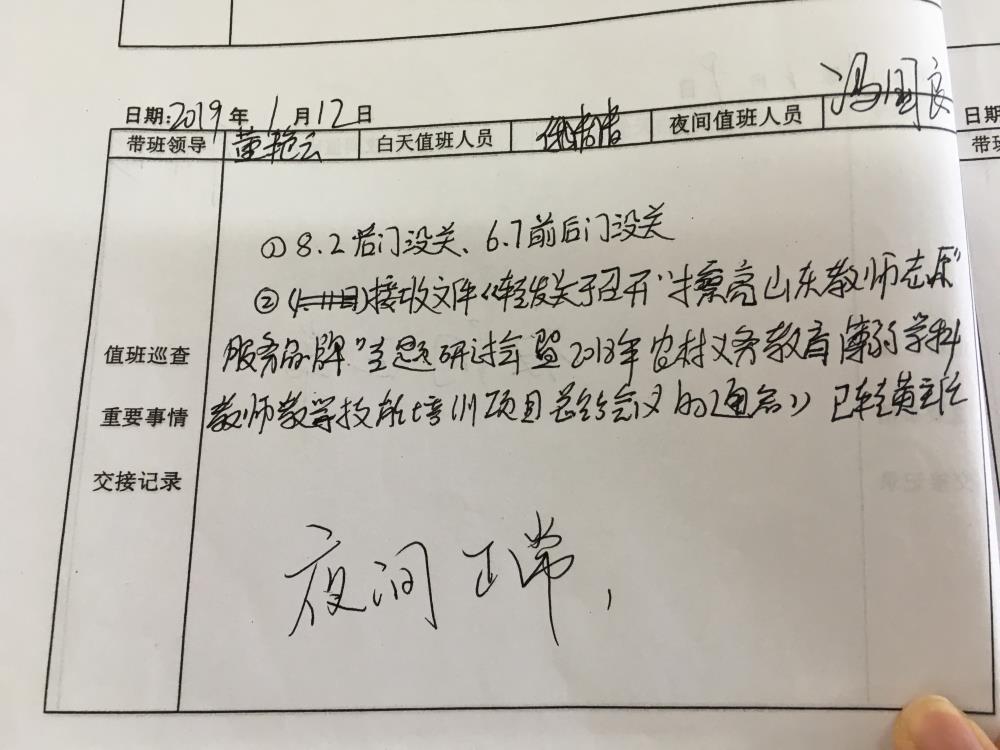 日期:2019年1月12日
带班领导 董艳云 白天值班人员 夜间值班人员 冯国良
日期
带班
① 8.2后门没关、6.7前后门没关
② 接收文件《转发关于召开"擦亮山东教师志愿
值班巡查 服务品牌"主题研讨会暨2018年农村义务教育薄弱学科
重要事情 教师教学技能培训项目总结会议的通知》已转黄主任
交接记录
夜间正常,